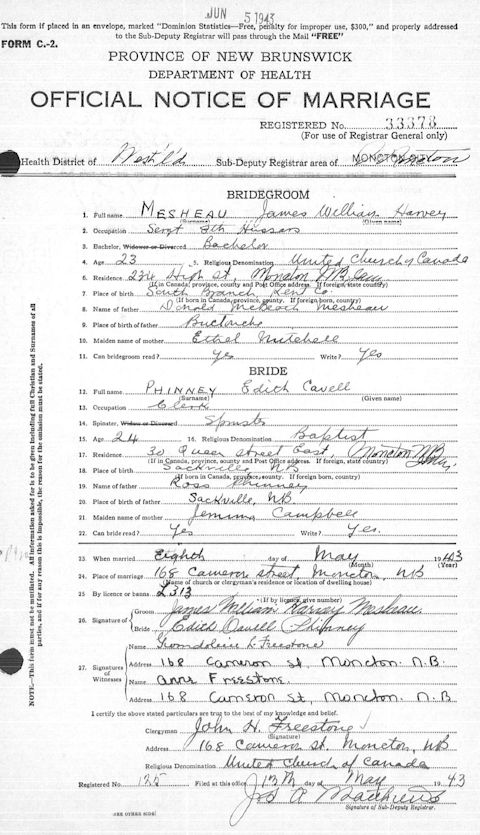 JUN 5 1943
This form if placed in an envelope, marked "Dominion Statistics—Free, penalty for improper use, $300," and properly addressed
to the Sub-Deputy Registrar will pass through the Mail "FREE"
FORM C.-2.
PROVINCE OF NEW BRUNSWICK
DEPARTMENT OF HEALTH
OFFICIAL NOTICE OF MARRIAGE
REGISTERED No. 33378
(For use of Registrar General only)
Health District of West'l'd Sub-Deputy Registrar area of MONCTON
BRIDEGROOM
1. Full name MESHEAU James William Harvey
(Surname) (Given name)
2. Occupation Sergt 8th Hussars
3. Bachelor, Widower or Divorced Bachelor
4. Age 23 5. Religious Denomination United Church of Canada
6. Residence 234 High St, Moncton NB
(If in Canada, province, county and Post Office address. If foreign, state country)
7. Place of birth South Branch Kent Co.
(If born in Canada, province, county. If foreign, state country)
8. Name of father Donald McBeath Mesheau
9. Place of birth of father Buctouche
10. Maiden name of mother Ethel Mitchell
11. Can bridegroom read? Yes Write? Yes
BRIDE
12. Full name PHINNEY Edith Cavell
(Surname) (Given name)
13. Occupation Clerk
14. Spinster, Widow or Divorced Spinster
15. Age 24 16. Religious Denomination Baptist
17. Residence 30 Queen street East, Moncton NB
(If in Canada, province, county and Post Office address. If foreign, state country)
18. Place of birth Sackville NB
(If born in Canada, province, county. If foreign, state country)
19. Name of father Ross Phinney
20. Place of birth of father Sackville, NB.
21. Maiden name of mother Jemima Campbell
22. Can bride read? Yes Write? Yes.
23. When married Eighth day of May 1943
(Month) (Year)
24. Place of marriage 168 Cameron street, Moncton, NB
(Name of church or clergyman's residence or location of dwelling house)
25. By licence or banns 2313
(If by licence, give number)
26. Signature of Groom James William Harvey Mesheau
Bride Edith Cavell Phinney
27. Signatures of Witnesses
Name Gwendoline L. Freestone
Address 168 Cameron st, Moncton. N.B.
Name Anne Freestone.
Address 168 Cameron St, Moncton. N.B.
I certify the above stated particulars are true to the best of my knowledge and belief.
Clergyman John H. Freestone
(Signature)
Address 168 Cameron St. Moncton, NB
Religious Denomination United Church of Canada
Registered No. 125 Filed at this office 13th day of May 1943
Signature of Sub-Deputy Registrar.
(SEE OTHER SIDE)
NOTE.—This form must not be mutilated. All information asked for is to be given including full Christian and Surnames of all
parties, and if for any reason this is impossible, the reason for the omission must be stated.